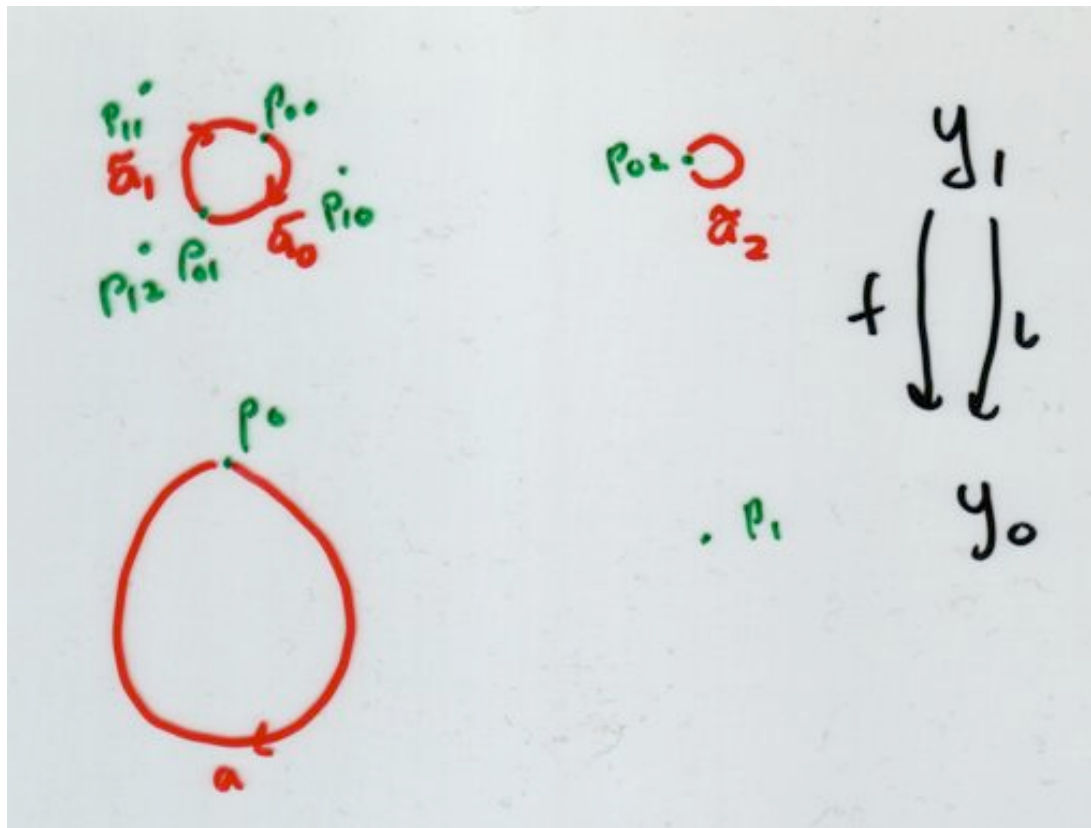 p₁₁ p₀₀
ã₁ p₁₀
p₁₂ p₀₁ ã₀
p₀₂ ã₂
y₁
f ι
p₀
p₁ y₀
a